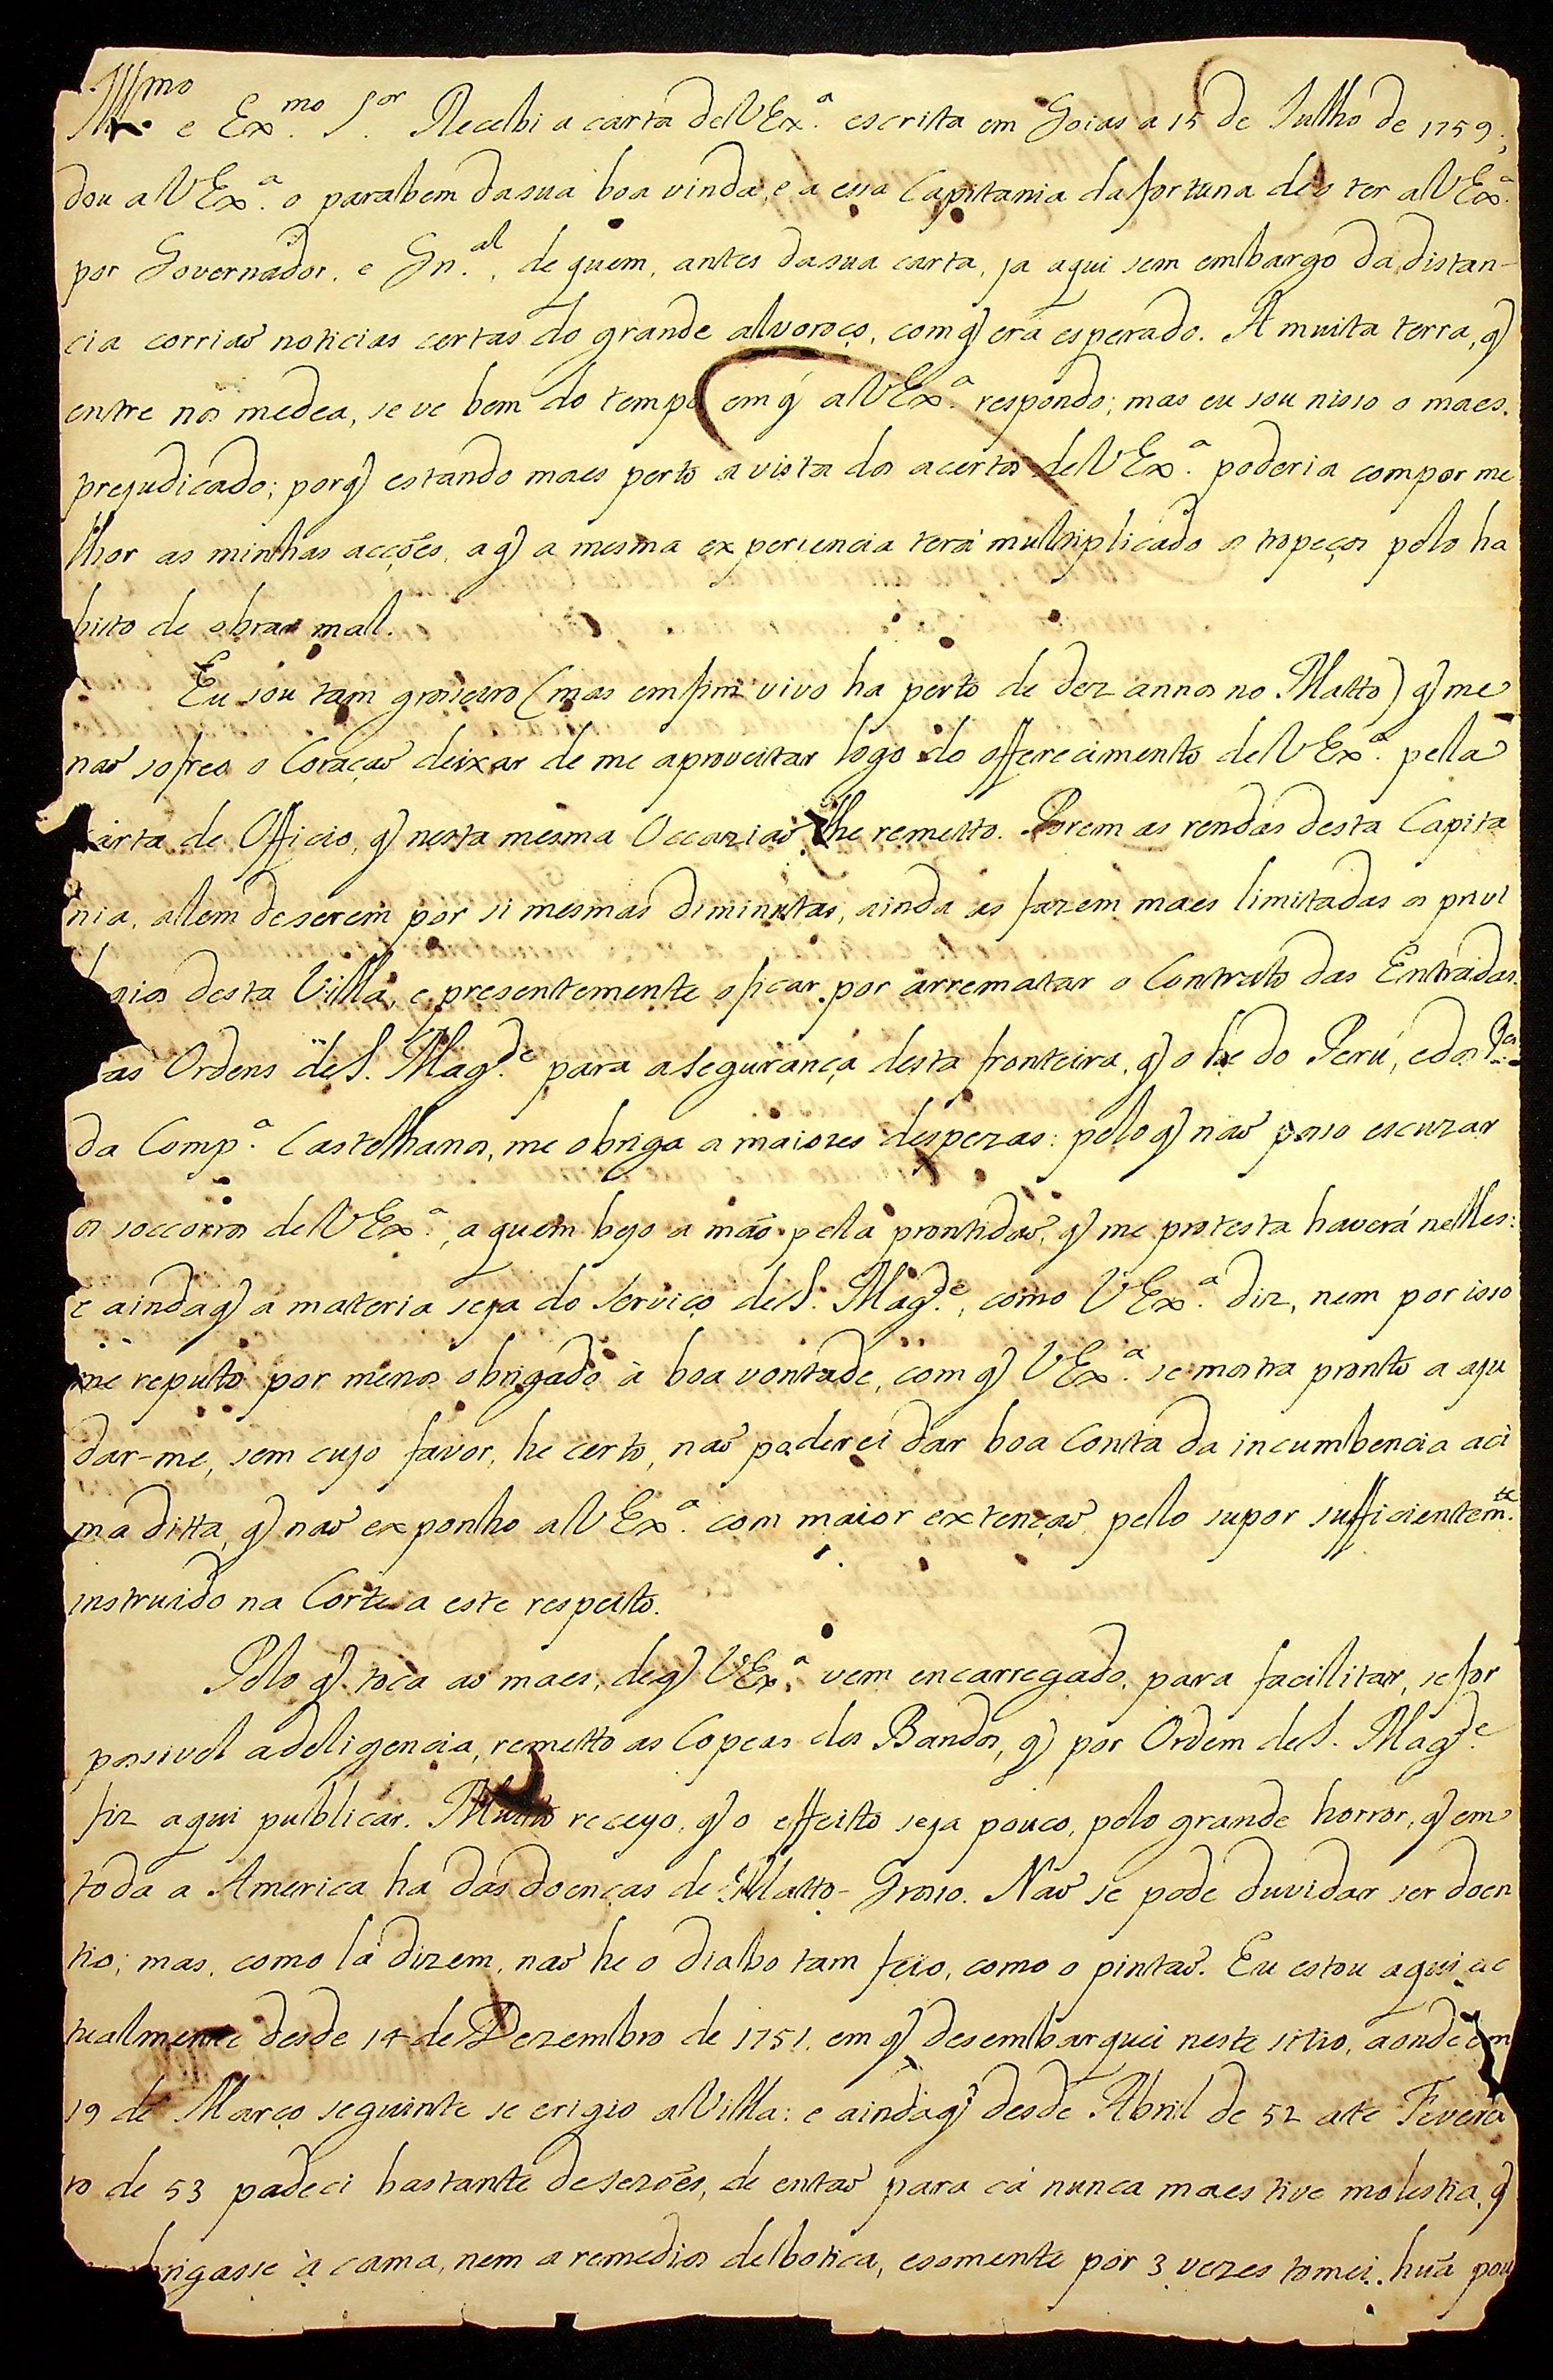 Ill.mo e Ex.mo S.or Recebi a carta de V Ex.a escrita em Goias a 15 de Julho de 1759;
dou a V Ex.a o parabem da sua boa vinda, e a essa Capitania da fortuna de o ter a V Ex.a
por Governador, e Gn.al, de quem, antes da sua carta, ja aqui sem embargo da distan-
cia corriaõ noticias certas do grande alvoroço, com q̃ era esperado. A muita terra, q̃
entre nos medea, se ve bem do tempo em q̃ a V Ex.a respondo; mas eu sou nisso o maes
prejudicado; porq̃ estando maes perto a vista dos acertos de V Ex.a poderia compor me
lhor as minhas acções, a q̃ a mesma experiencia terá multiplicado os tropeços pelo ha
bito de obrar mal.
Eu sou tam groseiro (mas emfim vivo ha perto de dez annos no Matto) q̃ me
naõ sofreo o Coraçaõ deixar de me aproveitar logo do offerecimento de V Ex.a pella
Carta de Officio, q̃ nesta mesma Occaziaõ lhe remetto. Porem as rendas desta Capita
nia, allem de serem por si mesmas diminutas, ainda as fazem maes limitadas os privi
legios desta Villa, e presentemente o ficar por arrematar o Contrato das Entradas.
as Ordens de S. Mag.de para a segurança desta fronteira, q̃ o he do Perú, e dos P.es
da Comp.a Castelhanos, me obriga a maiores despezas: pelo q̃ naõ posso escuzar
os soccorros de V Ex.a, a quem bejo a maõ pella prontidaõ, q̃ me protesta haverá nelles:
e ainda q̃ a materia seja do serviço de S. Mag.de, como V Ex.a diz, nem por isso
me reputo por menos obrigado à boa vontade, com q̃ V Ex.a se mostra pronto a aju
dar-me, sem cujo favor, he certo, naõ poderei dar boa Conta da incumbencia aci
ma ditta, q̃ naõ exponho a V Ex.a com maior extençaõ pello supor sufficientem.te
instruido na Corte a este respeito.
Pelo q̃ toca ao maes, de q̃ V Ex.a vem encarregado, para facillitar, se for
possivel a deligencia, remetto as Copeas dos Bandos, q̃ por Ordem de S. Mag.de
fiz aqui publicar. Muito receyo, q̃ o effeito seja pouco, pelo grande horror, q̃ em
toda a America ha das doenças de Matto-Grosso. Naõ se pode duvidar ser doen
tio; mas, como lá dizem, naõ he o diabo tam feio, como o pintaõ. Eu estou aqui ac
tualmente desde 14 de Dezembro de 1751. em q̃ desembarquei neste sitio, aonde em
19 de Março seguinte se erigio a Villa: e ainda q̃ desde Abril de 52 ate Feverei
ro de 53 padeci bastante de sezões, de entaõ para cá nunca maes tive molestia, q̃
obrigasse à cama, nem a remedios de botica, e somente por 3 vezes tomei huã pou